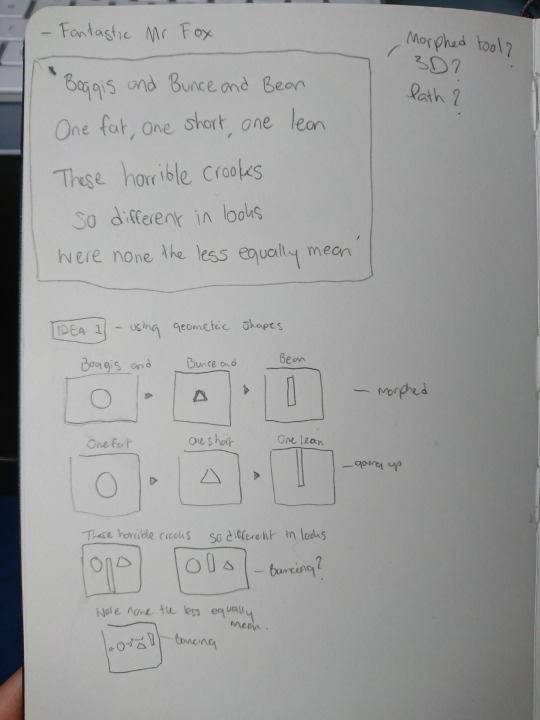 - Fantastic Mr Fox
Morphed tool?
3D?
Path?
'Boggis and Bunce and Bean
One fat, one short, one lean
These horrible crooks
So different in looks
Were none the less equally mean'
IDEA 1 - using geometric shapes
Boggis and Bunce and Bean
- morphed
One fat one short One lean
- going up
These horrible crooks so different in looks
- Bancing?
Were none the less equally
mean.
- Bancing